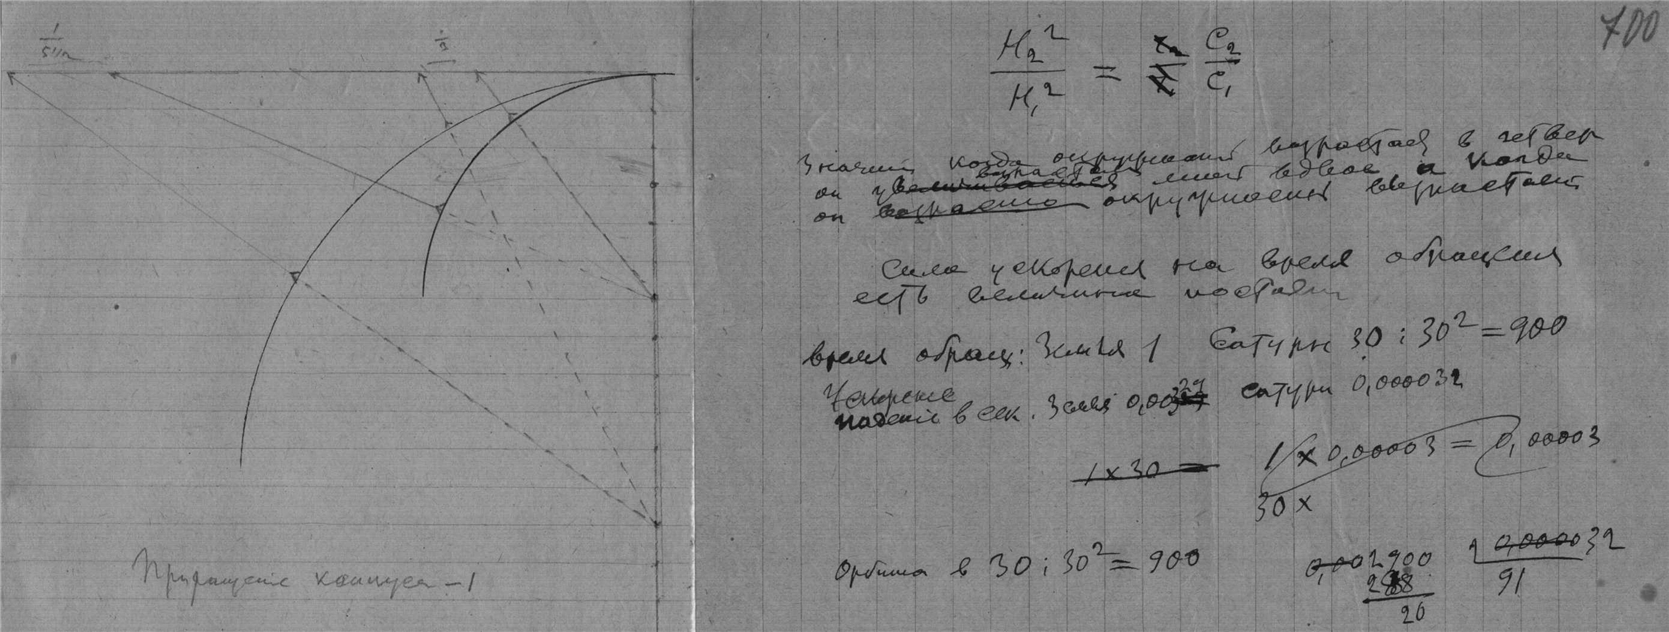 1
sin
Приращение конуса – 1
700
H₂² / H₁² = C₂ / C₁
Значит когда окружност возрастает в четвер
он увеличивается лишь вдвое а когда
он возрастает окружность возрастает
Сила ускорения на время обращения
есть величина постоян
время обращ: Земля 1 Сатурн 30 ; 30² = 900
Ускорение
падение в сек. Земля 0,0029 сатурн 0,000032
1 x 30 =
1 x 0,00003 = 0,00003
30 x
Орбита в 30 ; 30² = 900
0,002900 0,000032
288 91
20